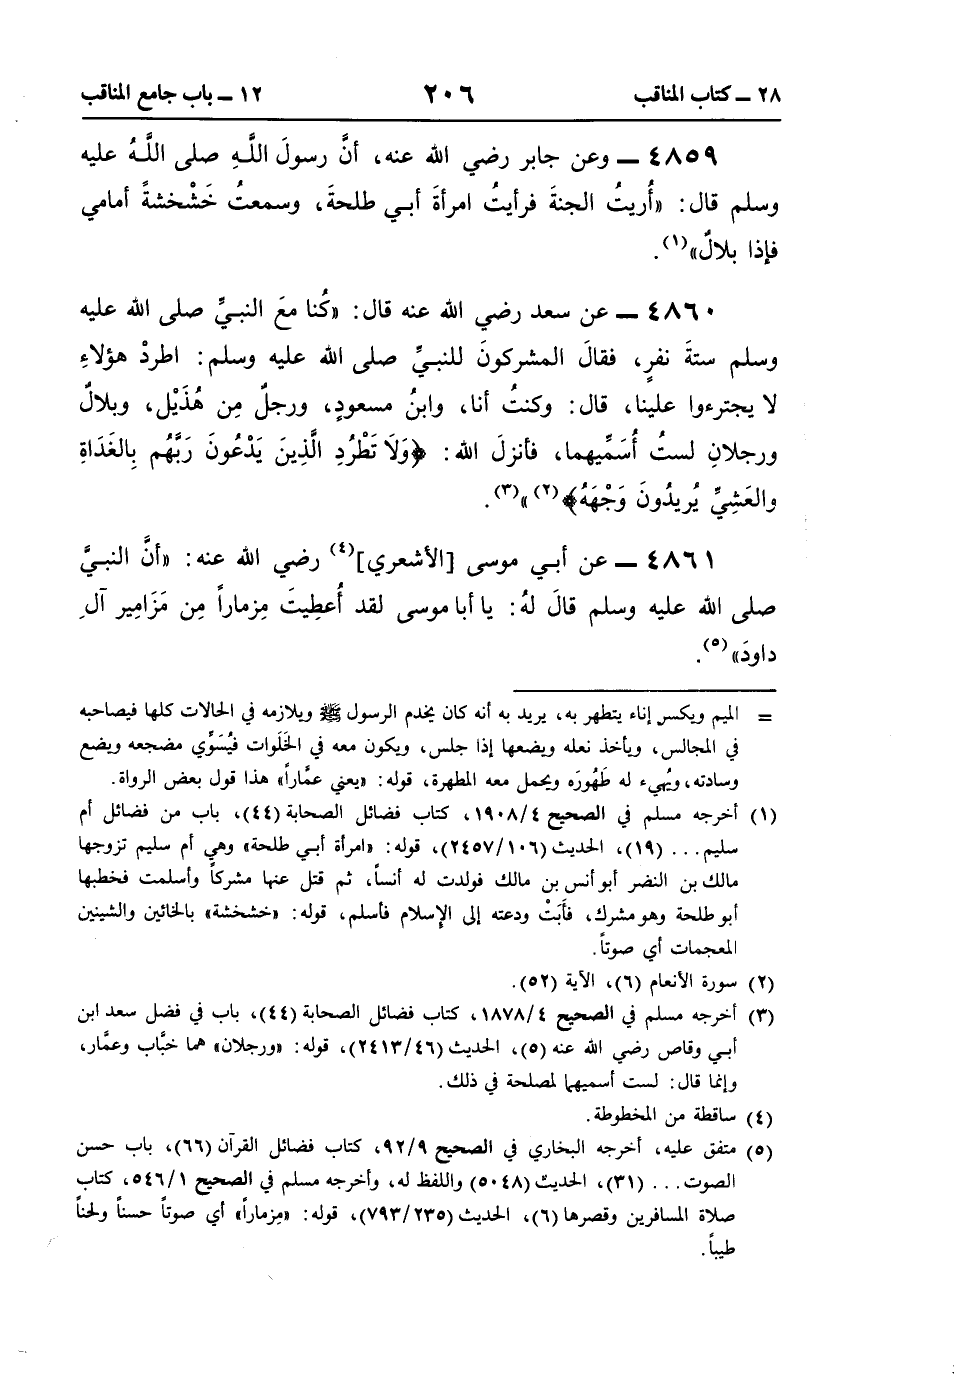 ٢٨ ـ كتاب المناقب ٢٠٦ ١٢ ـ باب جامع المناقب
٤٨٥٩ ـ وعن جابر رضي الله عنه، أنَّ رسولَ اللَّهِ صلى اللَّهُ عليه
وسلم قال: «أُريتُ الجنةَ فرأيتُ امرأةَ أبـي طلحةَ، وسمعتُ خَشْخشةً أمامي
فإذا بلالٌ»(١).
٤٨٦٠ ـ عن سعد رضي الله عنه قال: «كُنا معَ النبـيِّ صلى الله عليه
وسلم ستةَ نفرٍ، فقالَ المشركونَ للنبـيِّ صلى الله عليه وسلم: اطردْ هؤلاءِ
لا يجترءوا علينا، قال: وكنتُ أنا، وابنُ مسعودٍ، ورجلٌ مِن هُذَيْل، وبلالٌ
ورجلانِ لستُ أُسَمِّيهما، فأنزلَ الله: ﴿وَلَا تَطْرُدِ الَّذِينَ يَدْعُونَ رَبَّهُم بِالغَدَاةِ
والعَشِيِّ يُريدُونَ وَجْهَهُ﴾(٢)»(٣).
٤٨٦١ ـ عن أبـي موسى [الأشعري](٤) رضي الله عنه: «أنَّ النبـيَّ
صلى الله عليه وسلم قالَ لهُ: يا أبا موسى لقد أُعطِيتَ مِزماراً مِن مَزَامِير آلِ
داودَ»(٥).
= الميم ويكسر إناء يتطهر به، يريد به أنه كان يخدم الرسول ﷺ ويلازمه في الحالات كلها فيصاحبه
في المجالس، ويأخذ نعله ويضعها إذا جلس، ويكون معه في الخَلَوات فيُسَوِّي مضجعه ويضع
وسادته، ويُهيء له طَهُورَه ويحمل معه المطهرة، قوله: «يعني عمَّاراً» هذا قول بعض الرواة.
(١) أخرجه مسلم في الصحيح ١٩٠٨/٤، كتاب فضائل الصحابة (٤٤)، باب من فضائل أم
سليم... (١٩)، الحديث (٢٤٥٧/١٠٦)، قوله: «امرأة أبـي طلحة» وهي أم سليم تزوجها
مالك بن النضر أبو أنس بن مالك فولدت له أنساً، ثم قتل عنها مشركاً وأسلمت فخطبها
أبو طلحة وهو مشرك، فأَبَتْ ودعته إلى الإسلام فأسلم، قوله: «خشخشة» بالخائين والشينين
المعجمات أي صوتاً.
(٢) سورة الأنعام (٦)، الآية (٥٢).
(٣) أخرجه مسلم في الصحيح ١٨٧٨/٤، كتاب فضائل الصحابة (٤٤)، باب في فضل سعد ابن
أبـي وقاص رضي الله عنه (٥)، الحديث (٢٤١٣/٤٦)، قوله: «ورجلان» هما خبَّاب وعمَّار،
وإنما قال: لست أسميهما لمصلحة في ذلك.
(٤) ساقطة من المخطوطة.
(٥) متفق عليه، أخرجه البخاري في الصحيح ٩٢/٩، كتاب فضائل القرآن (٦٦)، باب حسن
الصوت... (٣١)، الحديث (٥٠٤٨) واللفظ له، وأخرجه مسلم في الصحيح ٥٤٦/١، كتاب
صلاة المسافرين وقصرها (٦)، الحديث (٧٩٣/٢٣٥)، قوله: «مِزماراً» أي صوتاً حسناً ولحناً
طيباً.